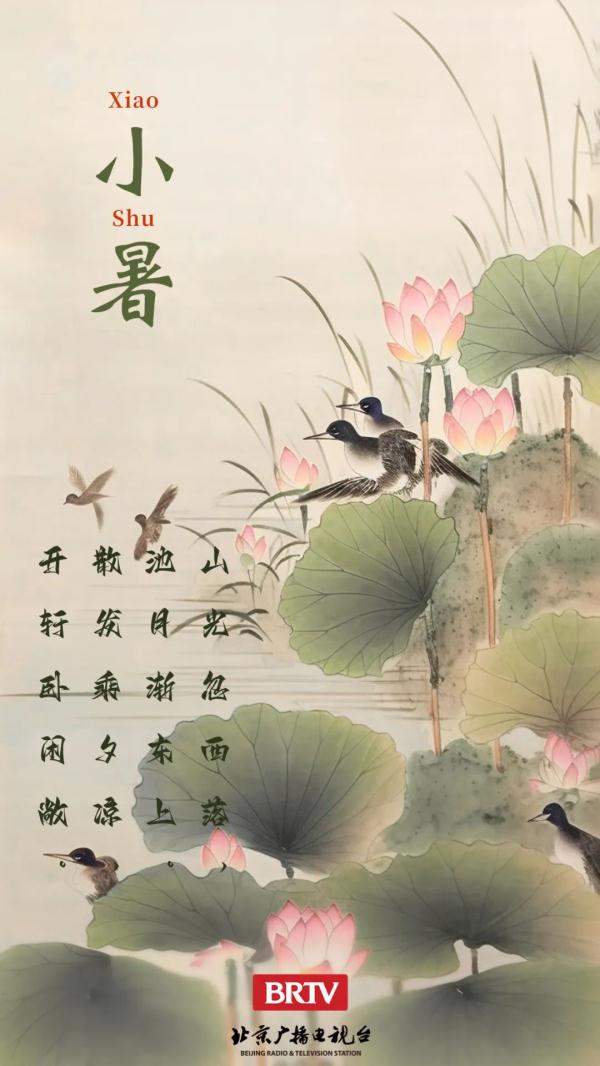 Xiao
小
Shu
暑
山光忽西落，
池月渐东上。
散发乘夕凉
开轩卧闲敞
BRTV
北京广播电视台
BEIJING RADIO & TELEVISION STATION